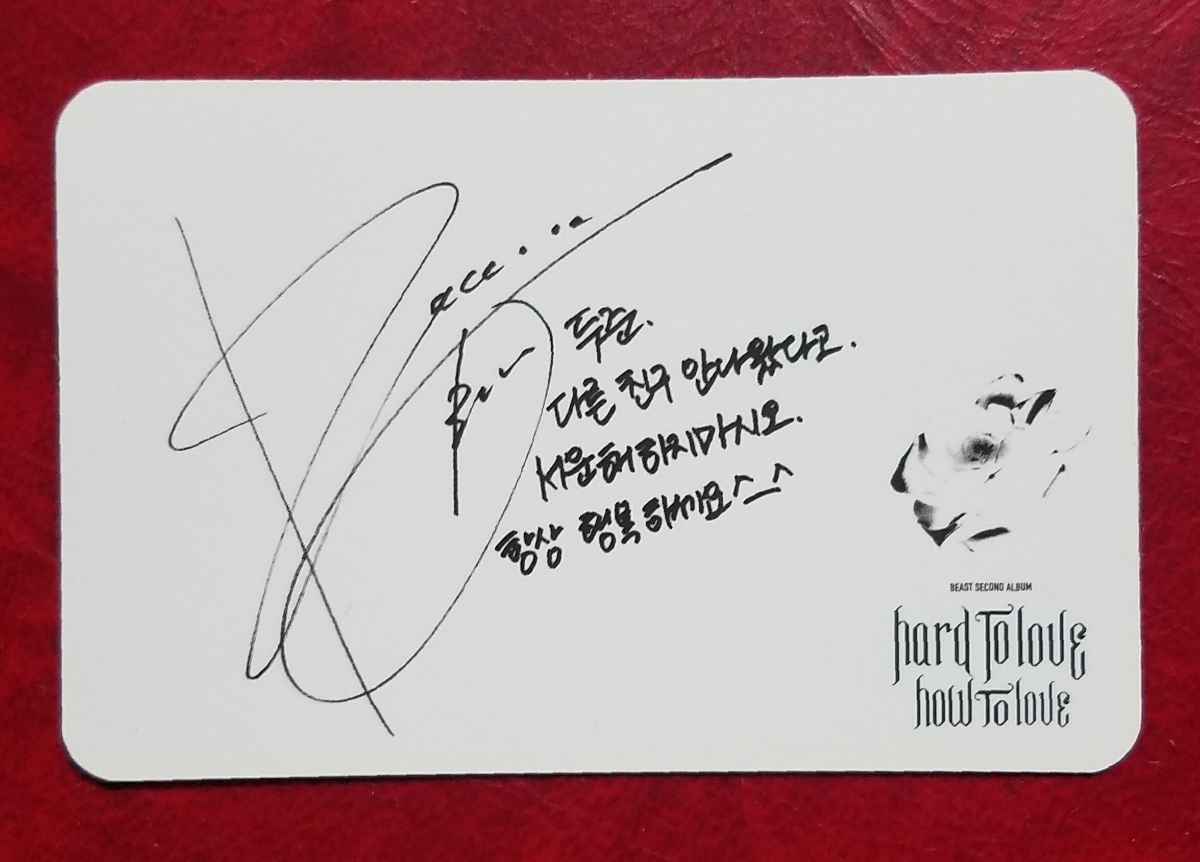 두준.
다른 친구 안나왔다고.
서운해하지마시오.
항상 행복하세요^_^
BEAST SECOND ALBUM
hard To love
how To love